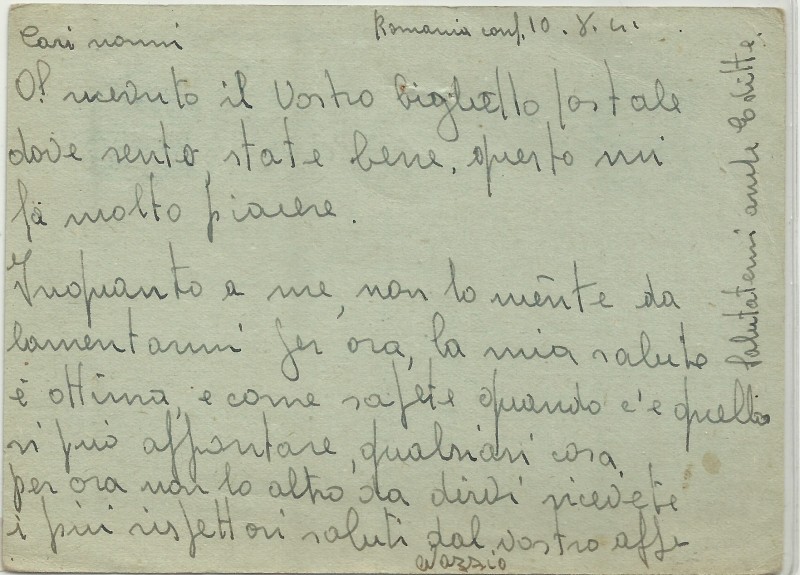 Romania conf. 10. 8. 41.
Cari nonni
O! ricevuto il Vostro biglietto postale
dove sento, state bene, questo mi
fà molto piacere.
Inquanto a me, non lo niente da
lamentarmi per ora, la mia salute
è ottima, e come sapete quando c'e quella
si può affrontare, qualsiasi cosa,
per ora non lo altro da dirvi ricevete
i più rispettosi saluti dal, vostro affe
Salutatemi anche